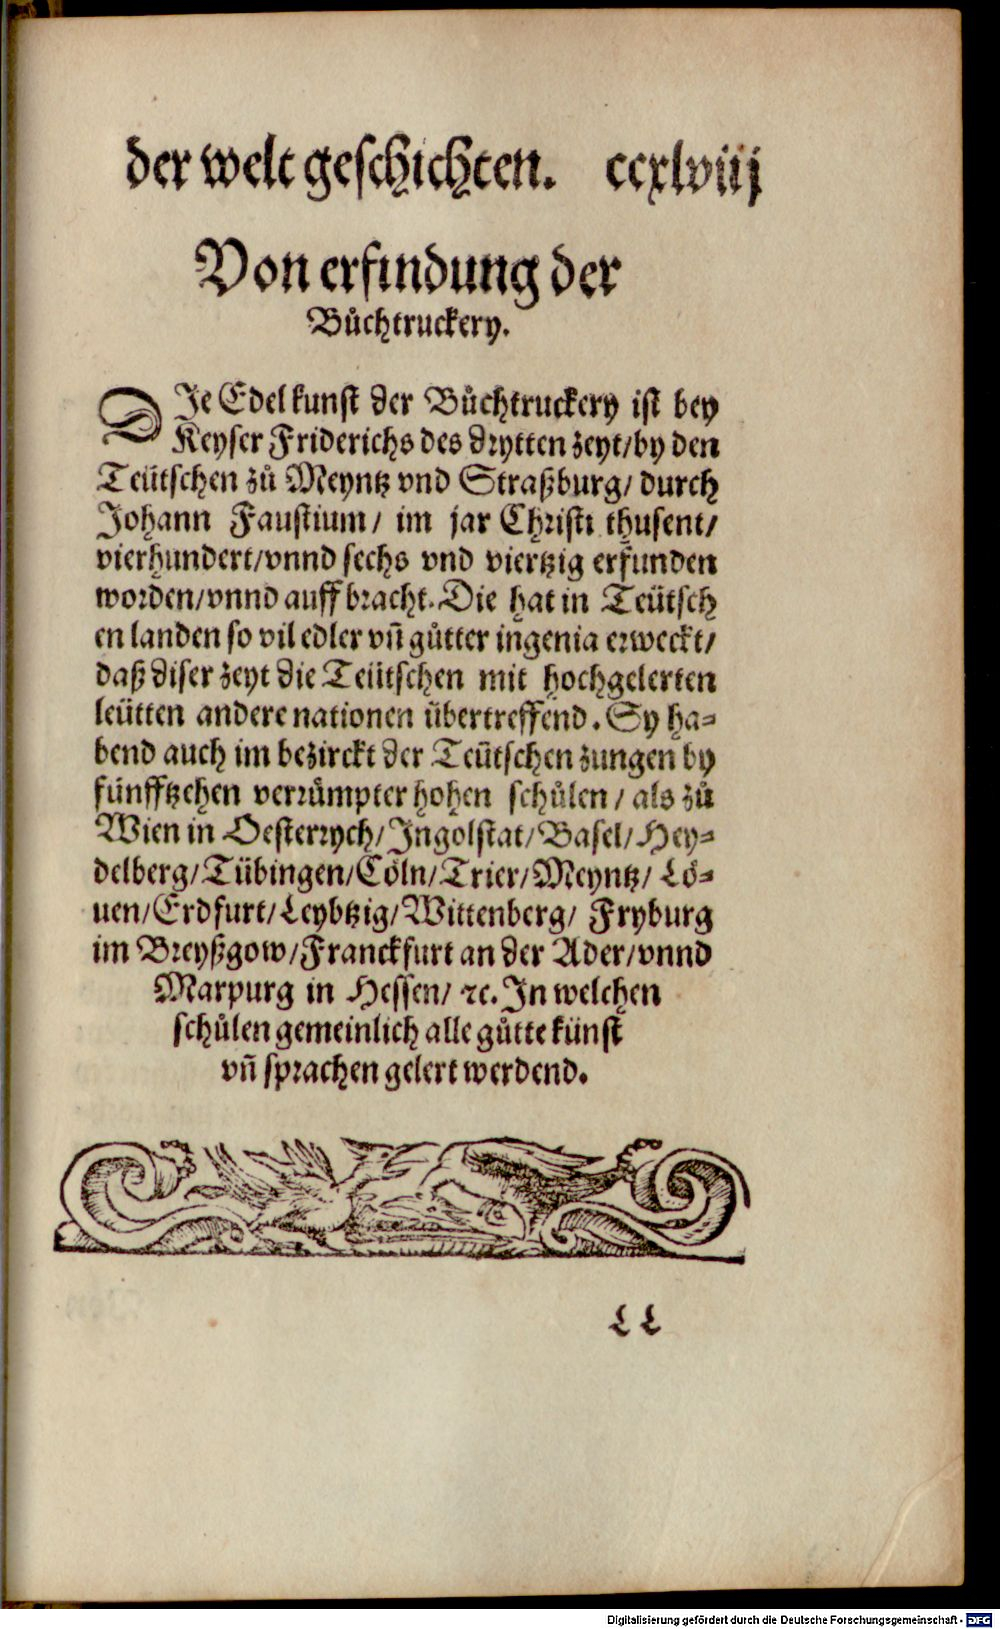 der welt geschichten. ccxlviij
Von erfindung der
Bůchtruckery.
DIe Edel kunst der Bůchtruckery ist bey
Keyser Friderichs des drytten zeyt/by den
Teütschen zů Meyntz vnd Straßburg/ durch
Johann Faustium/ im jar Christi thusent/
vierhundert/vnnd sechs vnd viertzig erfunden
worden/vnnd auff bracht. Die hat in Teütsch
en landen so vil edler vñ gůtter ingenia erweckt/
daß diser zeyt die Teütschen mit hochgelerten
leütten andere nationen übertreffend. Sy ha⸗
bend auch im bezirckt der Teütschen zungen by
fünfftzehen verrůmpter hohen schůlen/ als zů
Wien in Oesterrych/Ingolstat/Basel/Hey⸗
delberg/Tübingen/Cöln/Trier/Meyntz/ Lö⸗
uen/Erdfurt/Leybtzig/Wittenberg/ Fryburg
im Breyßgow/Franckfurt an der Ader/vnnd
Marpurg in Hessen/ ꝛc. In welchen
schůlen gemeinlich alle gůtte künst
vñ sprachen gelert werdend.
LL
Digitalisierung gefördert durch die Deutsche Forschungsgemeinschaft - DFG